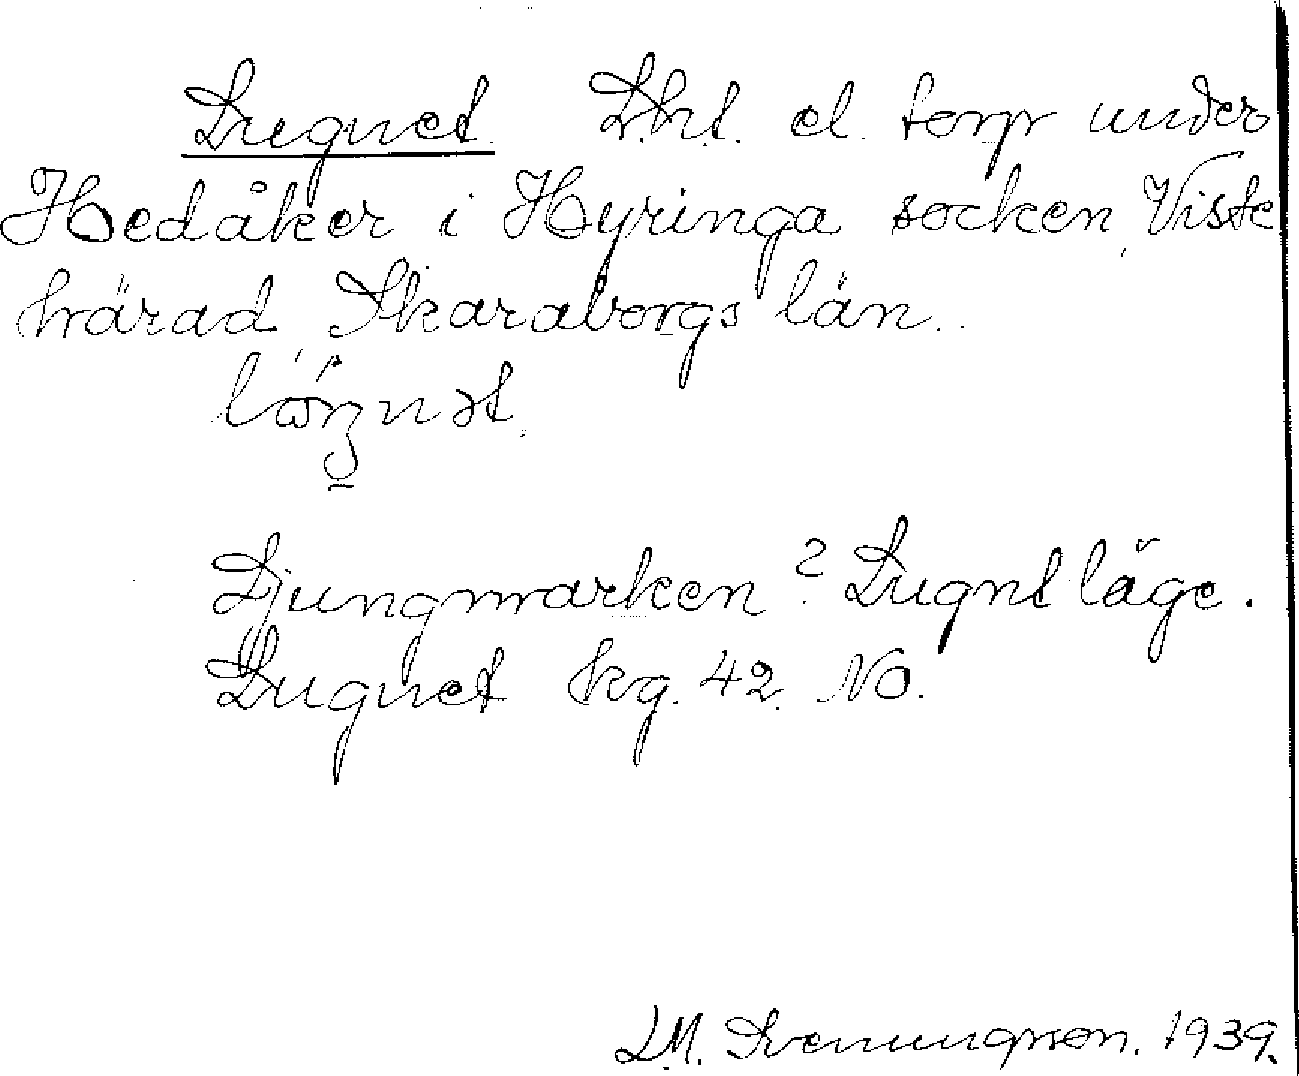 Lugnet. L.ht. el. torp under
Hedåker i Hyringa socken, Viste
härad, Skaraborgs län.
Ljungmarken? Lugnt läge.
Lugnet kg. 42. NO.
L.M. Svenungsson. 1939.